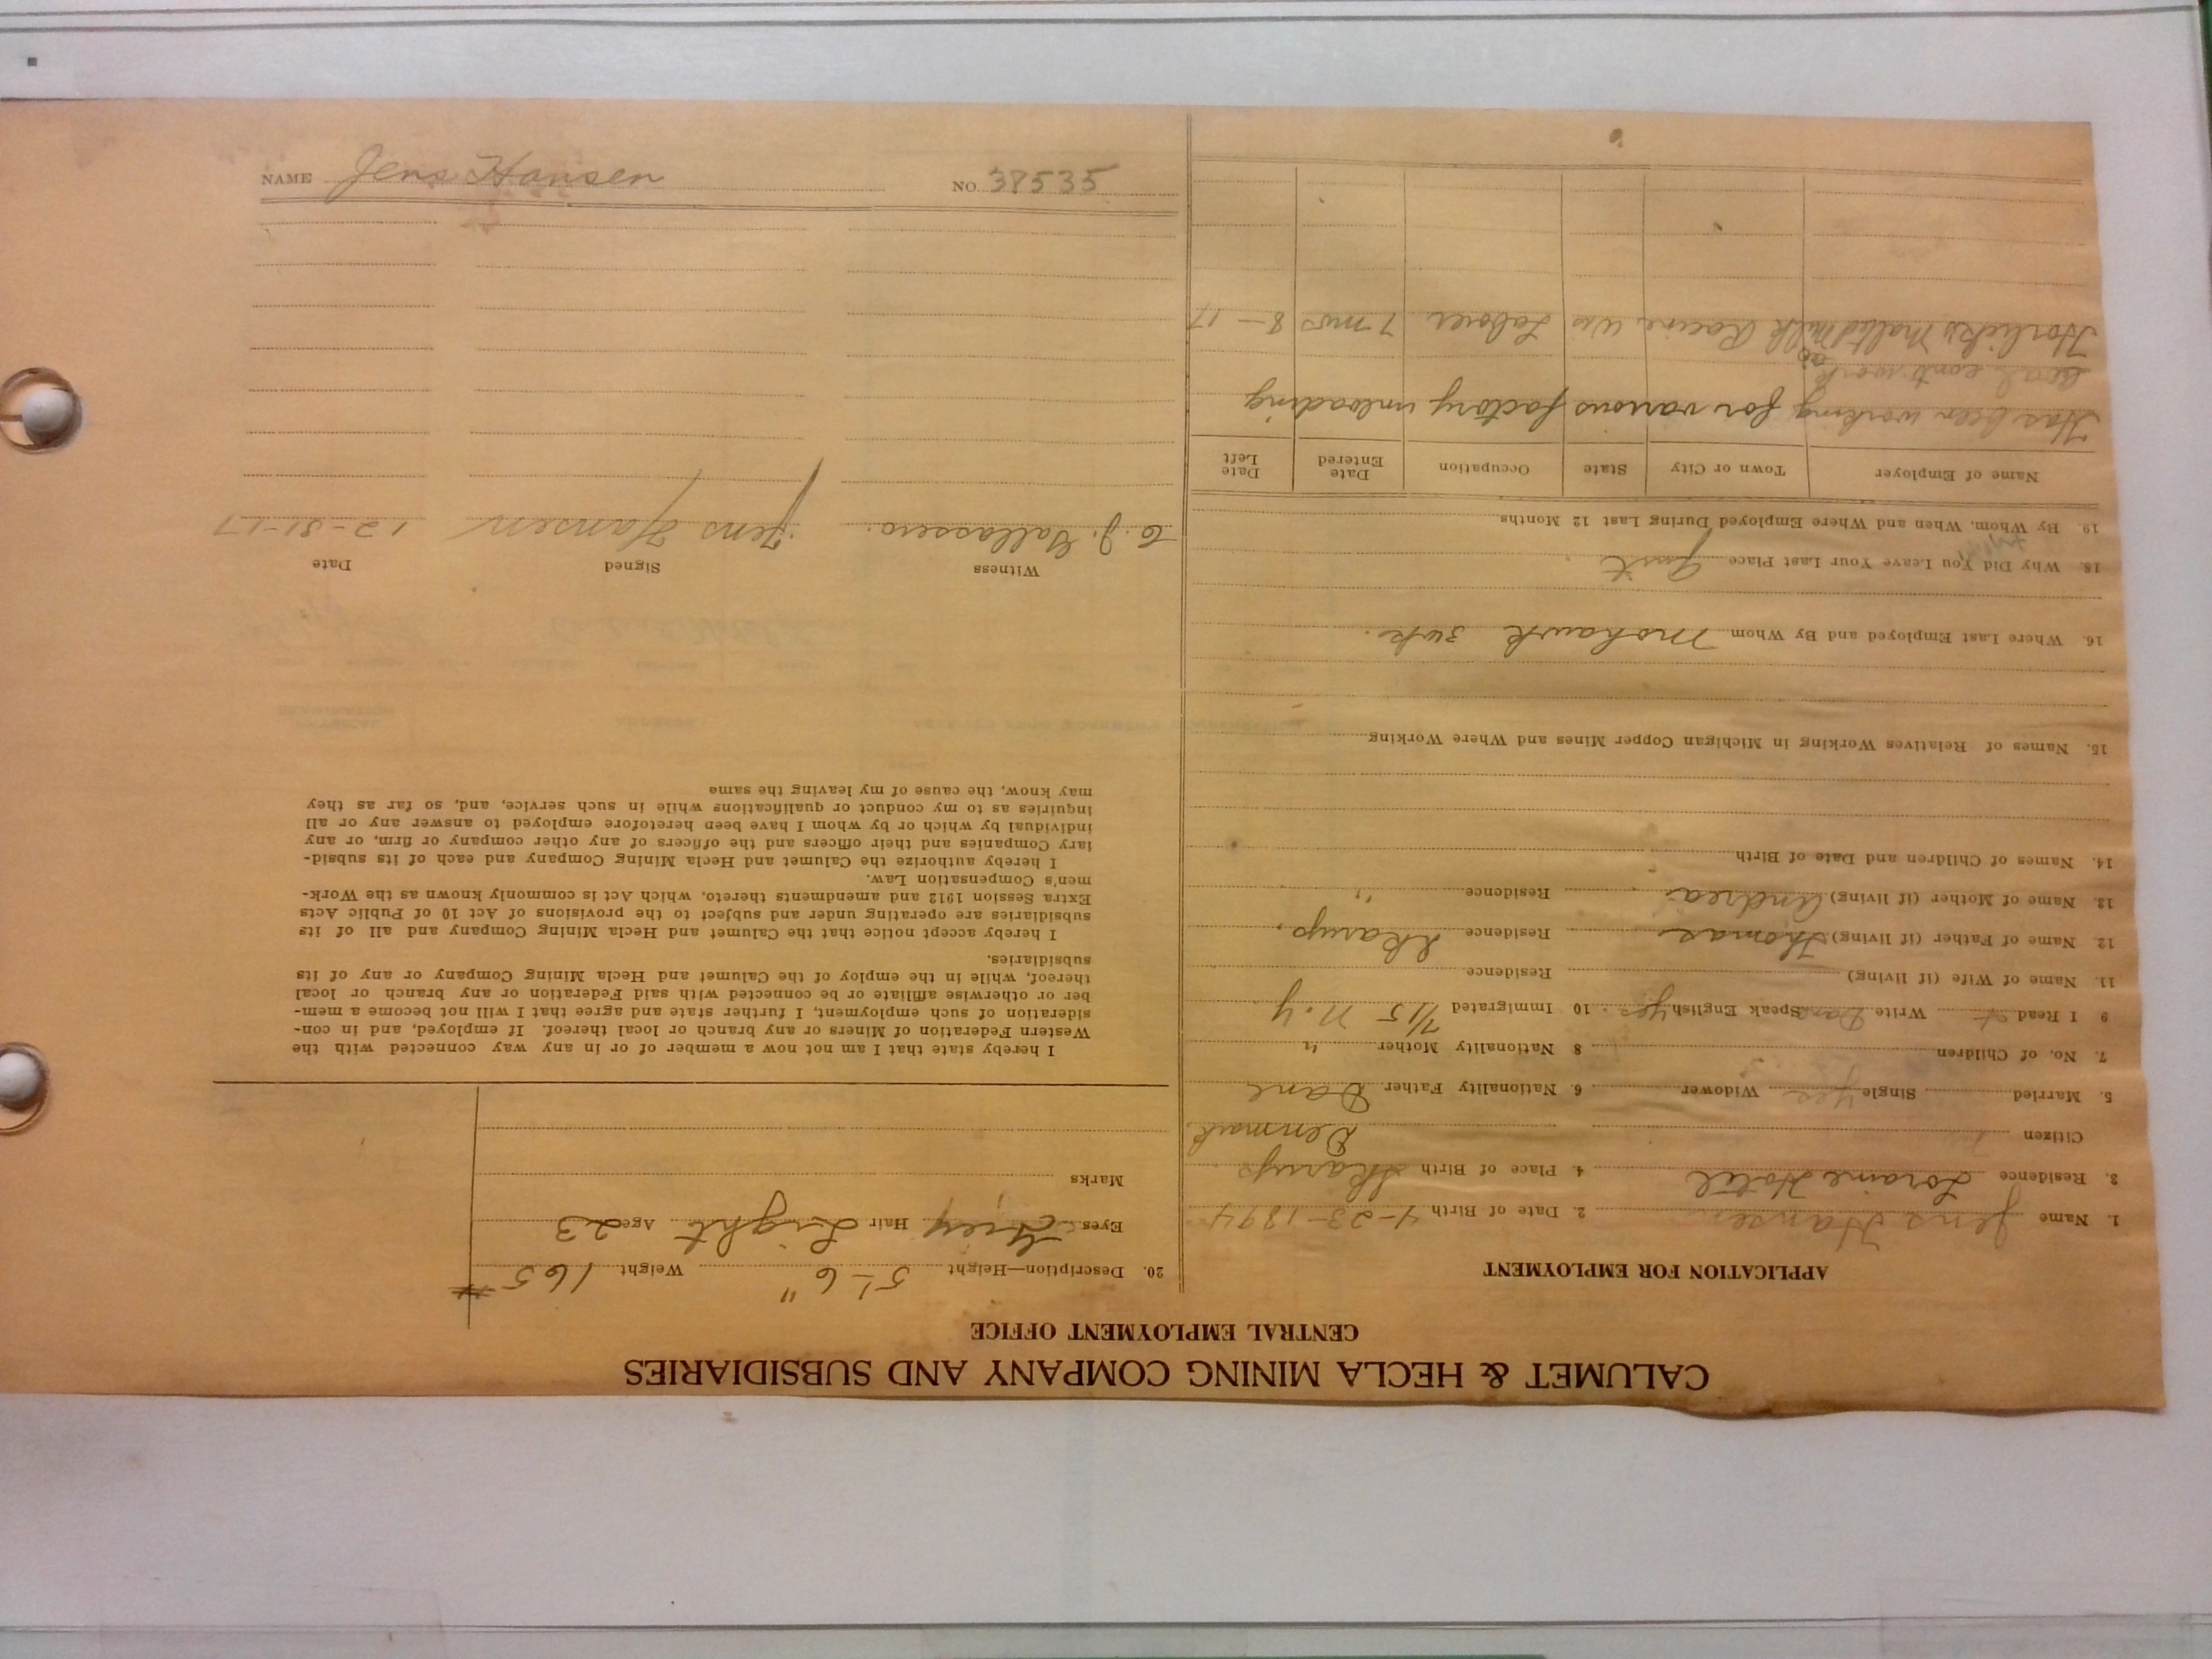 CALUMET & HECLA MINING COMPANY AND SUBSIDIARIES
CENTRAL EMPLOYMENT OFFICE
APPLICATION FOR EMPLOYMENT
1. Name Jens Hansen 2. Date of Birth 4-23-1894
3. Residence Loraine Hotel 4. Place of Birth Skarup
Citizen Denmark
5. Married Single yes Widower 6. Nationality Father Dane
7. No. of Children 8 Nationality Mother "
9 I Read Write Dane Speak English yes 10 Immigrated 7/15 N.Y
11. Name of Wife (if living) Residence
12. Name of Father (if living) Thomas Residence Skarup.
13. Name of Mother (if living) Andrea Residence "
14. Names of Children and Date of Birth
15. Names of Relatives Working in Michigan Copper Mines and Where Working
16. Where Last Employed and By Whom Mohawk 3 wks.
18. Why Did You Leave Your Last Place Quit
19. By Whom, When and Where Employed During Last 12 Months
Name of Employer Town or City State Occupation Date Entered Date Left
Has been working for various factory unloading
coal cont. work
Horlicks Malted Milk Co Racine Wis Laborer 7 mos 8-17
20. Description—Height 5'-6" Weight 165 #
Eyes Grey Hair Light Age 23
Marks
I hereby state that I am not now a member of or in any way connected with the
Western Federation of Miners or any branch or local thereof. If employed, and in con-
sideration of such employment, I further state and agree that I will not become a mem-
ber or otherwise affiliate or be connected with said Federation or any branch or local
thereof, while in the employ of the Calumet and Hecla Mining Company or any of its
subsidiaries.
I hereby accept notice that the Calumet and Hecla Mining Company and all of its
subsidiaries are operating under and subject to the provisions of Act 10 of Public Acts
Extra Session 1912 and amendments thereto, which Act is commonly known as the Work-
men's Compensation Law.
I hereby authorize the Calumet and Hecla Mining Company and each of its subsid-
iary Companies and their officers and the officers of any other company or firm, or any
individual by which or by whom I have been heretofore employed to answer any or all
inquiries as to my conduct or qualifications while in such service, and, so far as they
may know, the cause of my leaving the same
Witness Signed Date
C. J. Galassero. Jens Hansen 12-31-17
NAME Jens Hansen NO. 38535